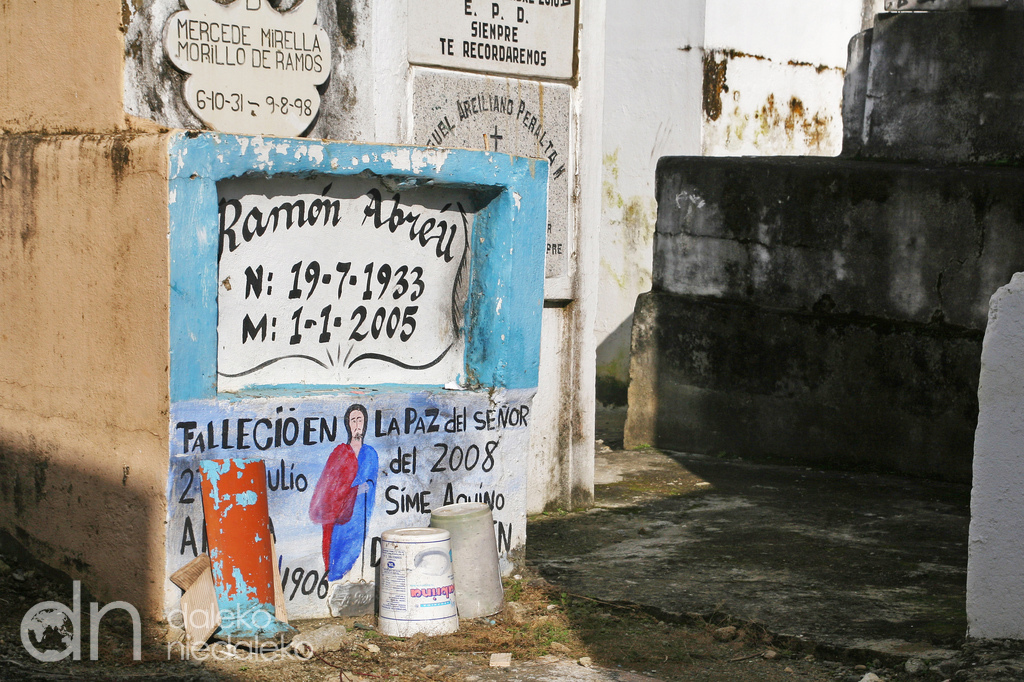 MERCEDE MIRELLA
MORILLO DE RAMOS
6-10-31 - 9-8-98
E. P. D.
SIEMPRE
TE RECORDAREMOS
ARCILIANO PERALTA
Ramón Abreú
N: 19-7-1933
M: 1-1-2005
FALLECIÓ EN LA PAZ del SEÑOR
ulio del 2008
SIME AQUINO
1906
dn daleko
niedaleko